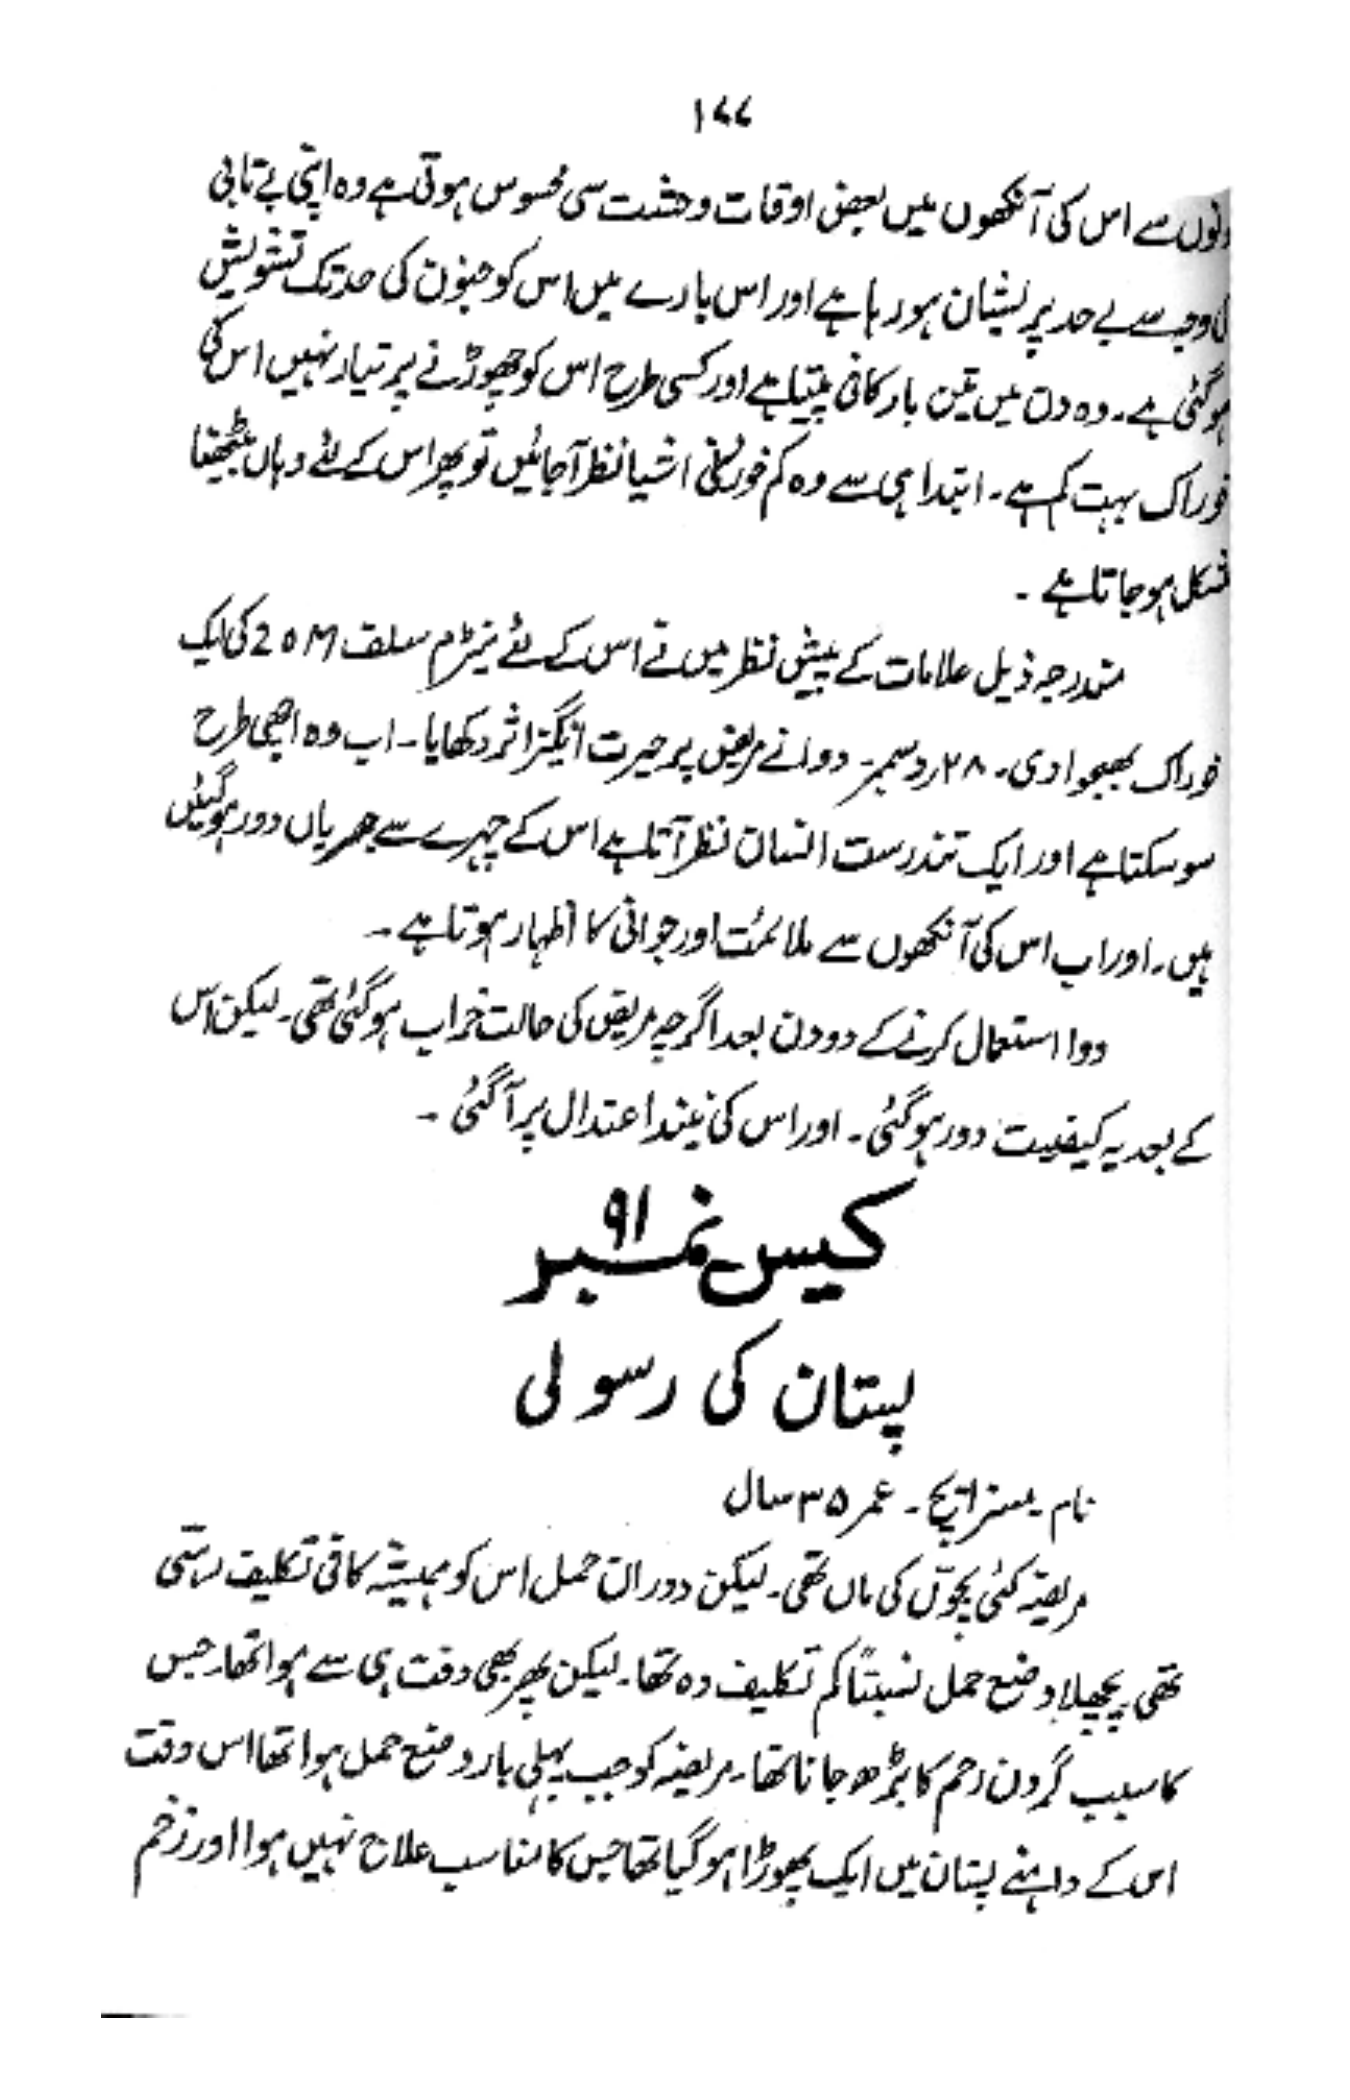 ۱۷۷
دنوں سے اس کی آنکھوں میں بعض اوقات وحشت سی محسوس ہوتی ہے وہ اپنی بے تابی
کی وجہ سے بے حد پریشان ہو رہا ہے اور اس بارے میں اس کو جنون کی حد تک تشویش
ہو گئی ہے۔ وہ دن میں تین بار کافی پیتا ہے اور کسی طرح اس کو چھوڑنے پر تیار نہیں اس کی
خوراک بہت کم ہے۔ ابتدا ہی سے وہ کم خور اشیا نظر آجائیں تو پھر اس کے لئے وہاں بیٹھنا
مشکل ہو جاتا ہے۔
مندرجہ ذیل علامات کے پیش نظر میں نے اس کے لئے نیٹرم سلف 20M کی ایک
خوراک بھجوا دی۔ ۲۸ر دسمبر۔ دوا نے مریض پر حیرت انگیز اثر دکھایا۔ اب وہ اچھی طرح
سو سکتا ہے اور ایک تندرست انسان نظر آتا ہے اس کے چہرے سے جھریاں دور ہو گئیں
ہیں۔ اور اب اس کی آنکھوں سے ملائمت اور جوانی کا اظہار ہوتا ہے۔
دوا استعمال کرنے کے دو دن بعد اگرچہ مریض کی حالت خراب ہو گئی تھی۔ لیکن اس
کے بعد یہ کیفیت دور ہو گئی۔ اور اس کی نیند اعتدال پر آگئی۔
کیس نمبر ۹۱
پستان کی رسولی
نام۔ مسز ایچ۔ عمر ۳۵ سال
مریضہ کئی بچوں کی ماں تھی۔ لیکن دوران حمل اس کو ہمیشہ کافی تکلیف رہتی
تھی۔ پچھلا وضع حمل نسبتاً کم تکلیف دہ تھا۔ لیکن پھر بھی دقت ہی سے ہوا تھا۔ جس
کا سبب گردن رحم کا بڑھ جانا تھا۔ مریضہ کو جب پہلی بار وضع حمل ہوا تھا اس وقت
اس کے داہنے پستان میں ایک پھوڑا ہو گیا تھا جس کا مناسب علاج نہیں ہوا اور زخم